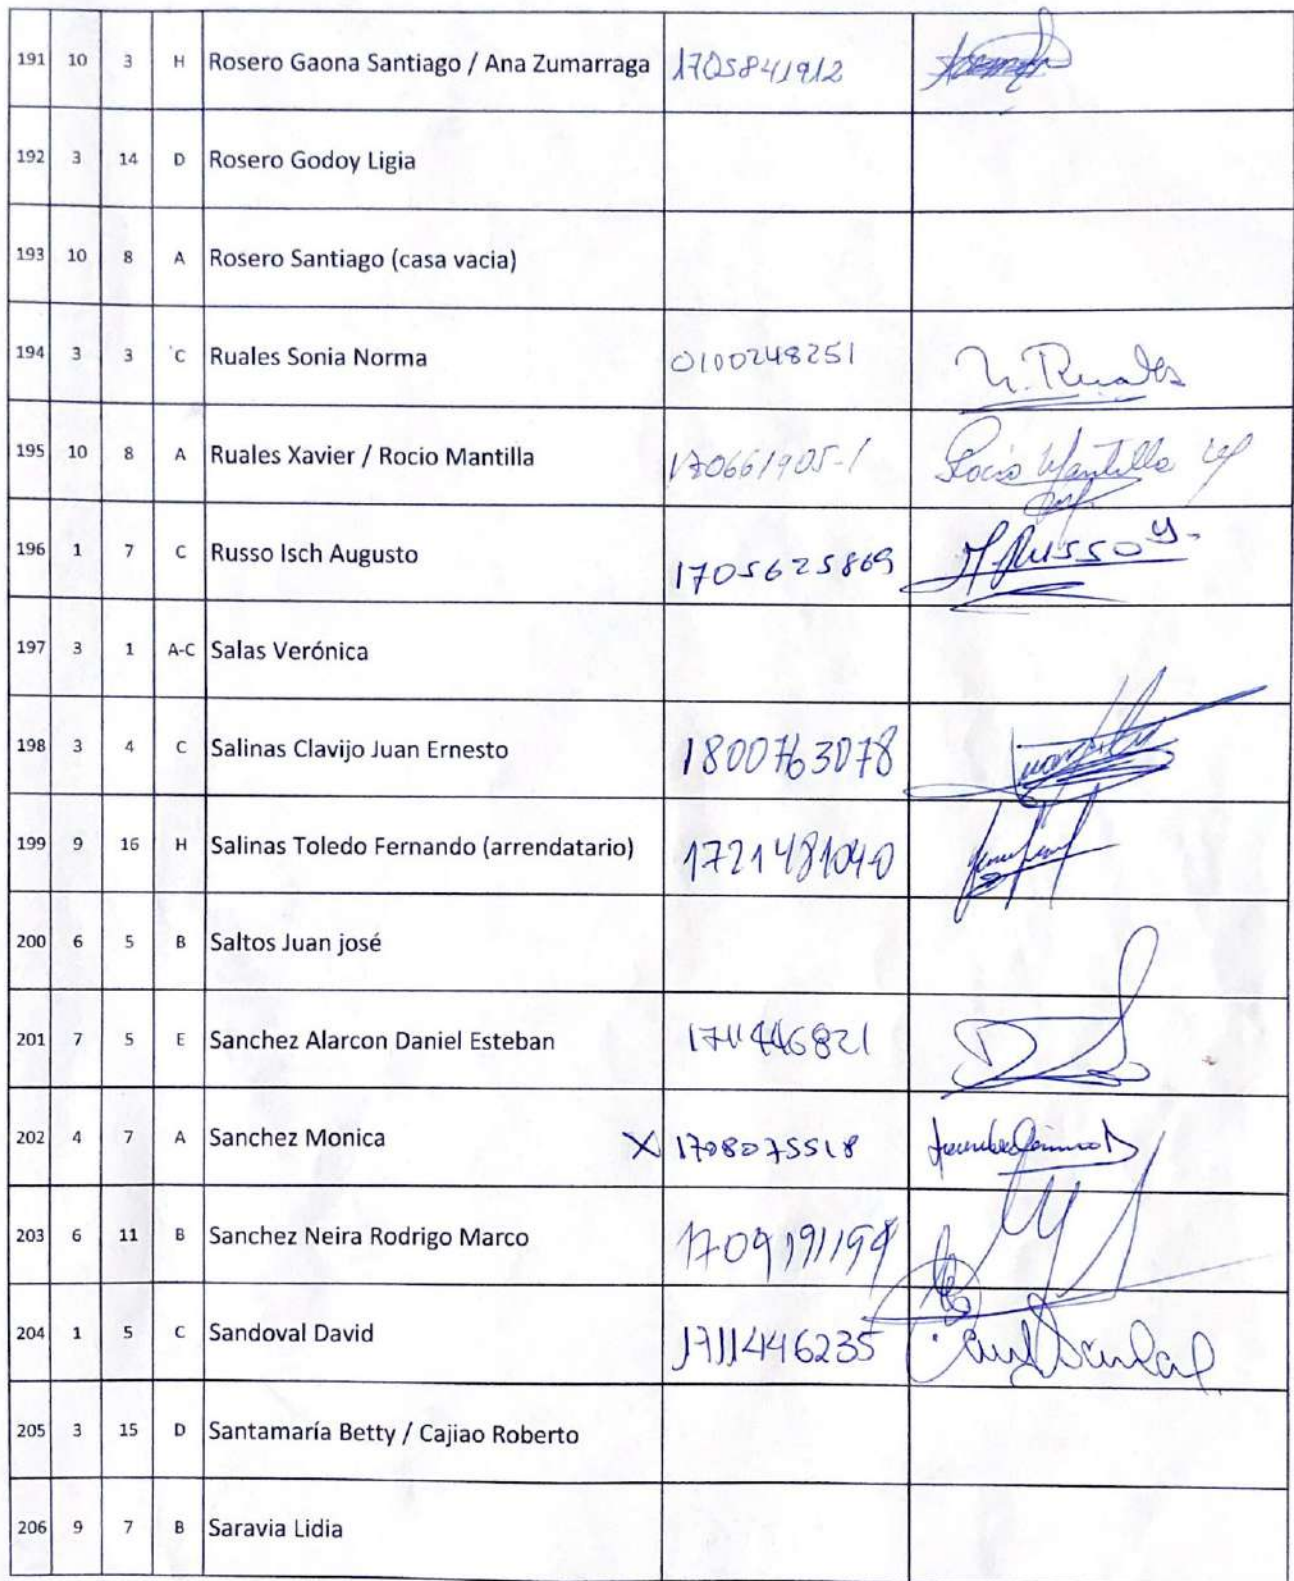 191 10 3 H Rosero Gaona Santiago / Ana Zumarraga 1705841912
192 3 14 D Rosero Godoy Ligia
193 10 8 A Rosero Santiago (casa vacia)
194 3 3 C Ruales Sonia Norma 0100248251 N. Ruales
195 10 8 A Ruales Xavier / Rocio Mantilla 170661905-1 Rocio Mantilla
196 1 7 C Russo Isch Augusto 1705625869 A. Russo
197 3 1 A-C Salas Verónica
198 3 4 C Salinas Clavijo Juan Ernesto 1800763078
199 9 16 H Salinas Toledo Fernando (arrendatario) 1721481040
200 6 5 B Saltos Juan josé
201 7 5 E Sanchez Alarcon Daniel Esteban 1711446821
202 4 7 A Sanchez Monica X 1708075518
203 6 11 B Sanchez Neira Rodrigo Marco
204 1 5 C Sandoval David 1711446235
205 3 15 D Santamaría Betty / Cajiao Roberto
206 9 7 B Saravia Lidia